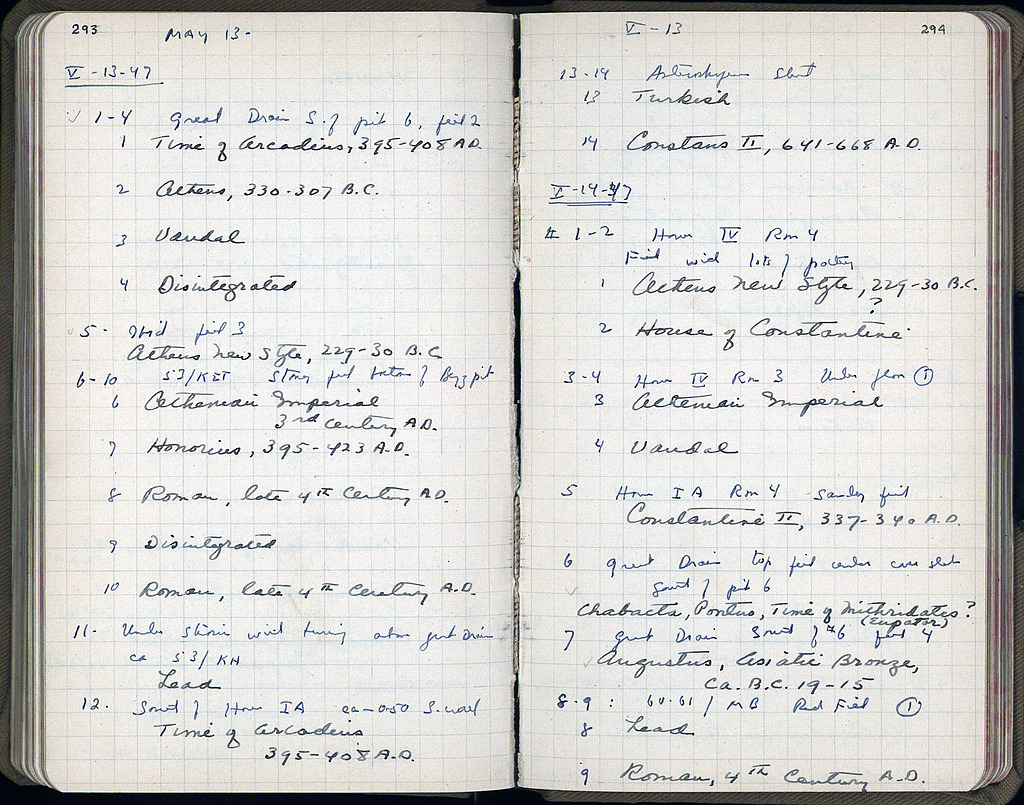 293
MAY 13-
V-13-47
1-4 Great Drain S. of pit 6, fill 2
1 Time of Arcadius, 395-408 A.D.
2 Athens, 330-307 B.C.
3 Vandal
4 Disintegrated
5- fill 3
Athens New Style, 229-30 B.C.
6-10 53/KET fill bottom of Byz pit
6 Athenian Imperial
3rd Century A.D.
7 Honorius, 395-423 A.D.
8 Roman, late 4th Century A.D.
9 Disintegrated
10 Roman, late 4th Century A.D.
11- Under stones above great Drain
ca 53/KH
Lead
12. South of House IA ca -0.50 S. wall
Time of Arcadius
395-408 A.D.
V-13
294
13-14 Asteroskopeion Street
13 Turkish
14 Constans II, 641-668 A.D.
V-14-47
1-2 House IV Rm 4
Fill with lots of pottery
1 Athens New Style, 229-30 B.C.
?
2 House of Constantine
3-4 House IV Rm 3 Under floor ①
3 Athenian Imperial
4 Vandal
5 House IA Rm 4 Sandy fill
Constantine II, 337-340 A.D.
6 Great Drain top fill under cover slab
South of pit 6
Chabacta, Pontus, Time of Mithridates?
(Eupator)
7 Great Drain South of #6 fill 4
Augustus, Asiatic Bronze,
Ca. B.C. 19-15
8-9: 60-61/MB Red Fill ①
8 Lead
9 Roman, 4th Century A.D.